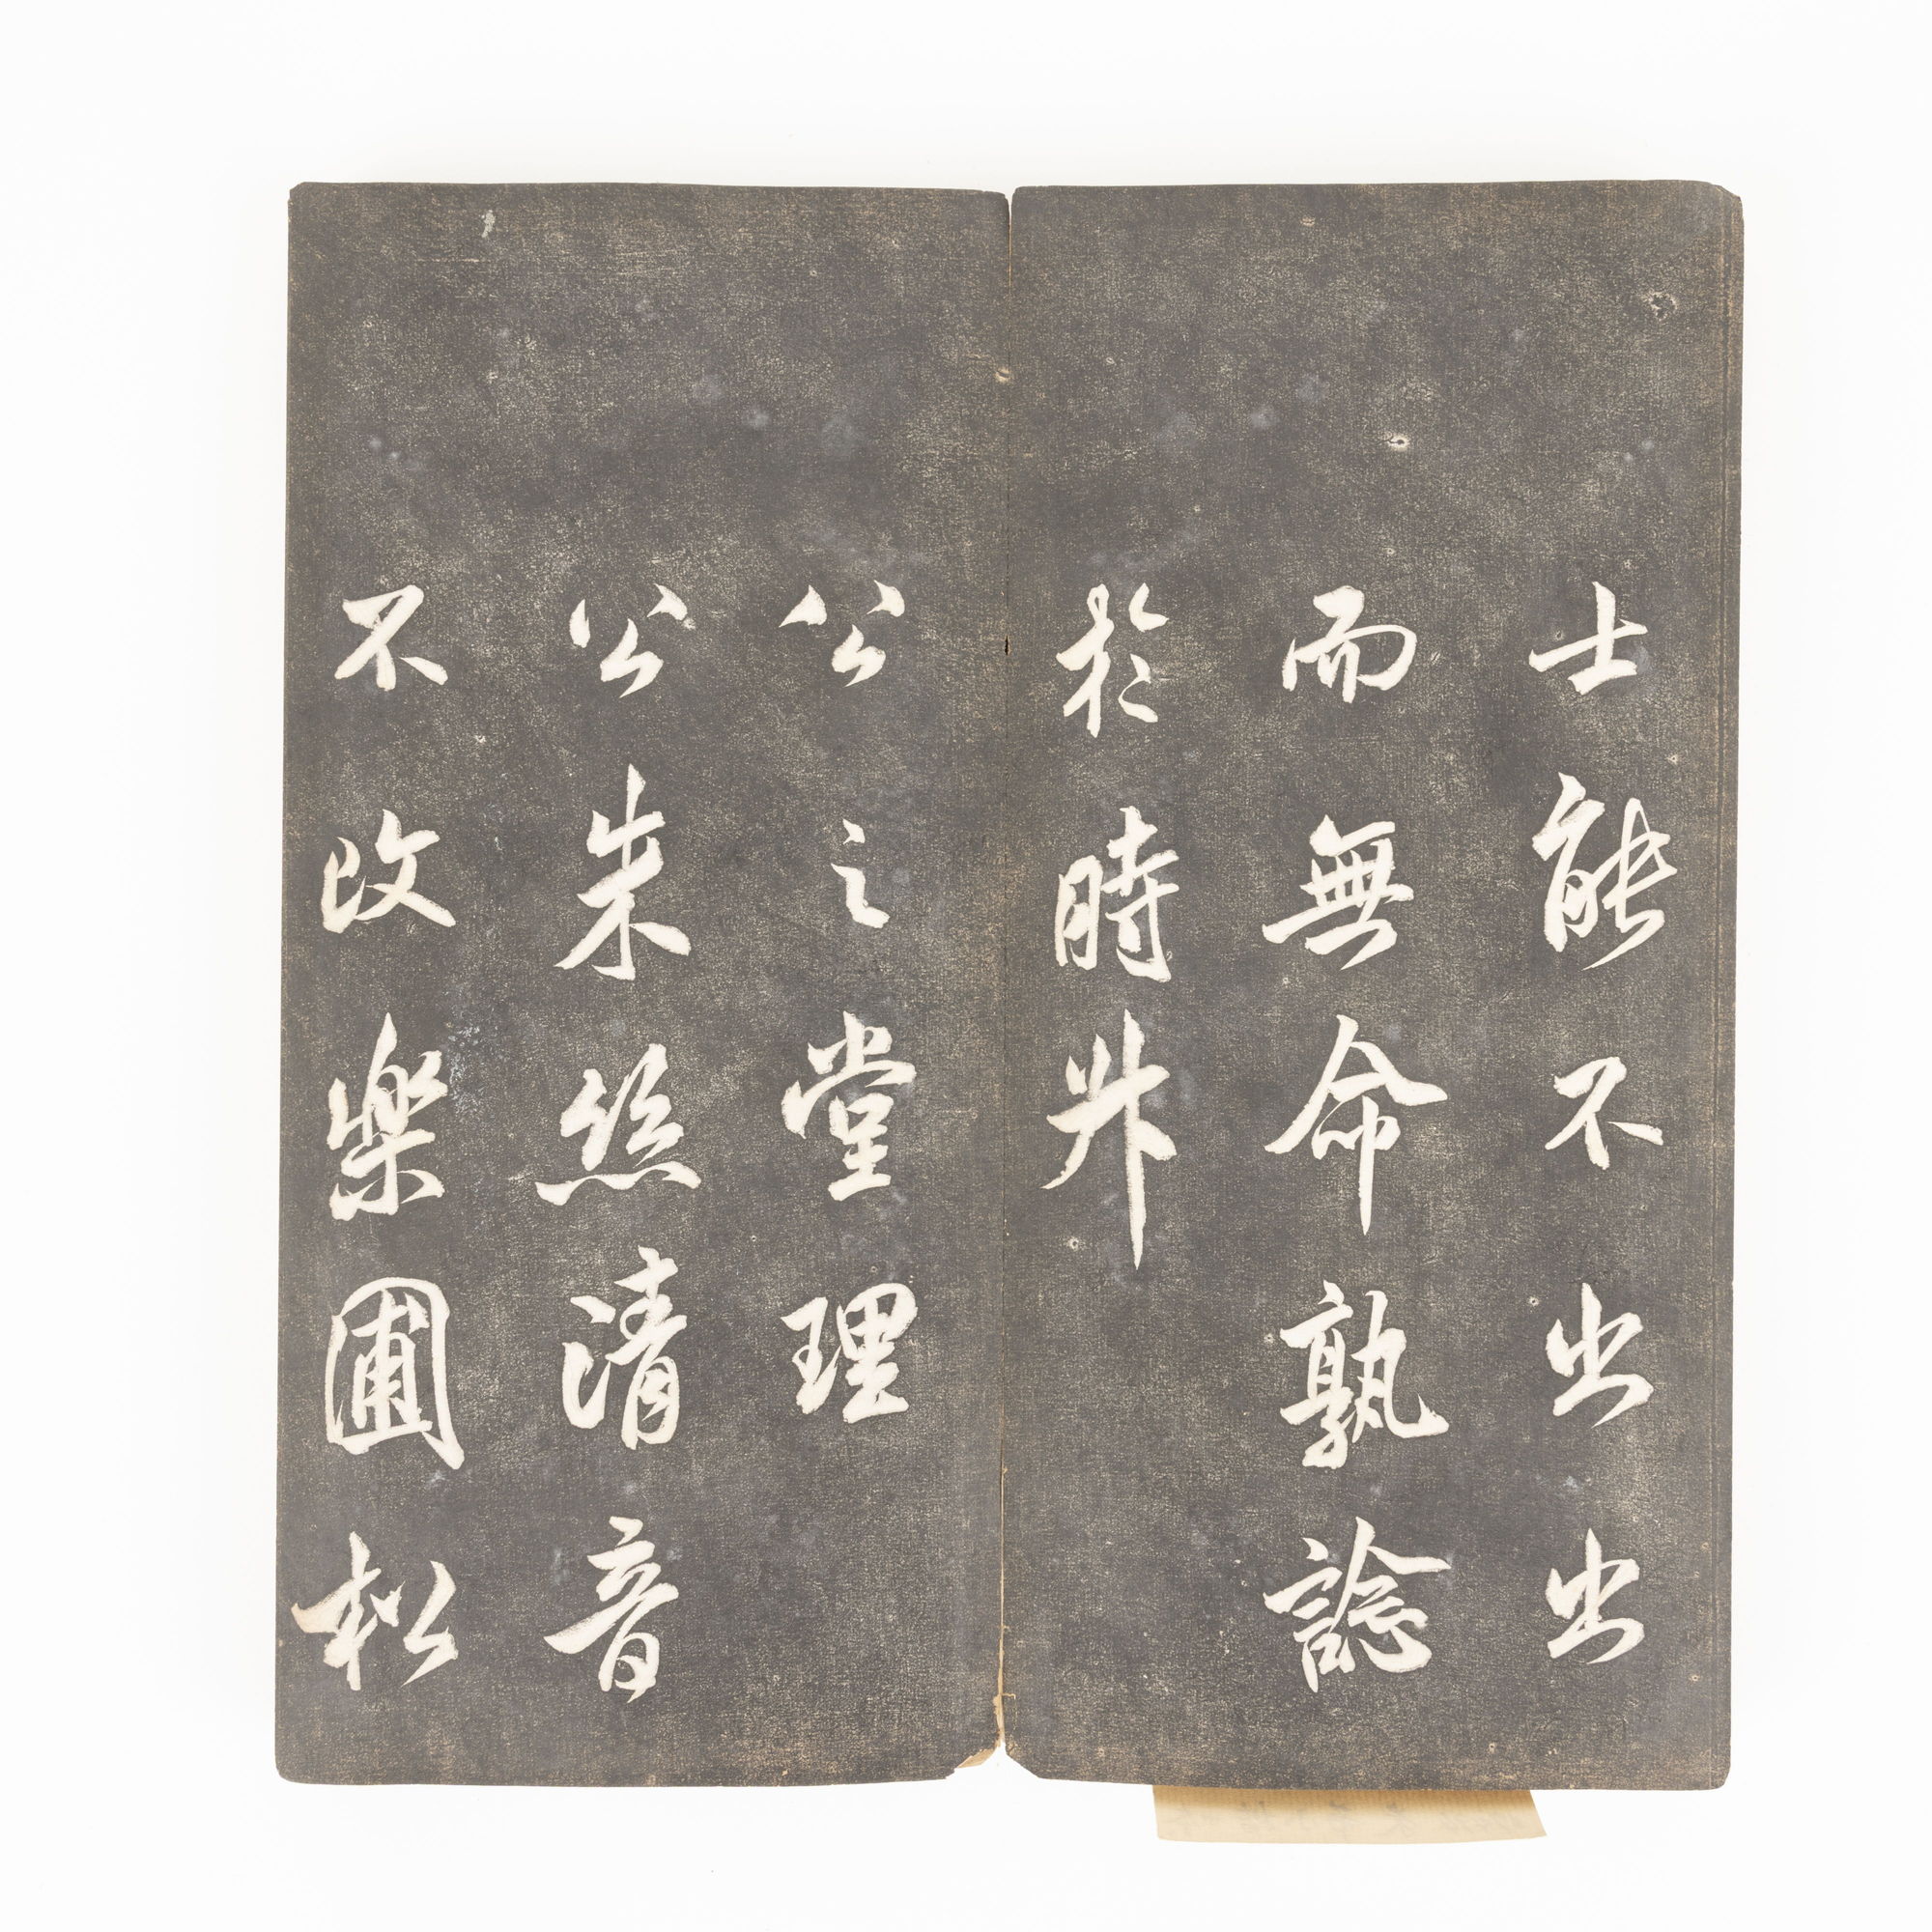 士能不出出
而無命孰諗
於時艸
公之堂理
公朱絲清音
不改樂圃松